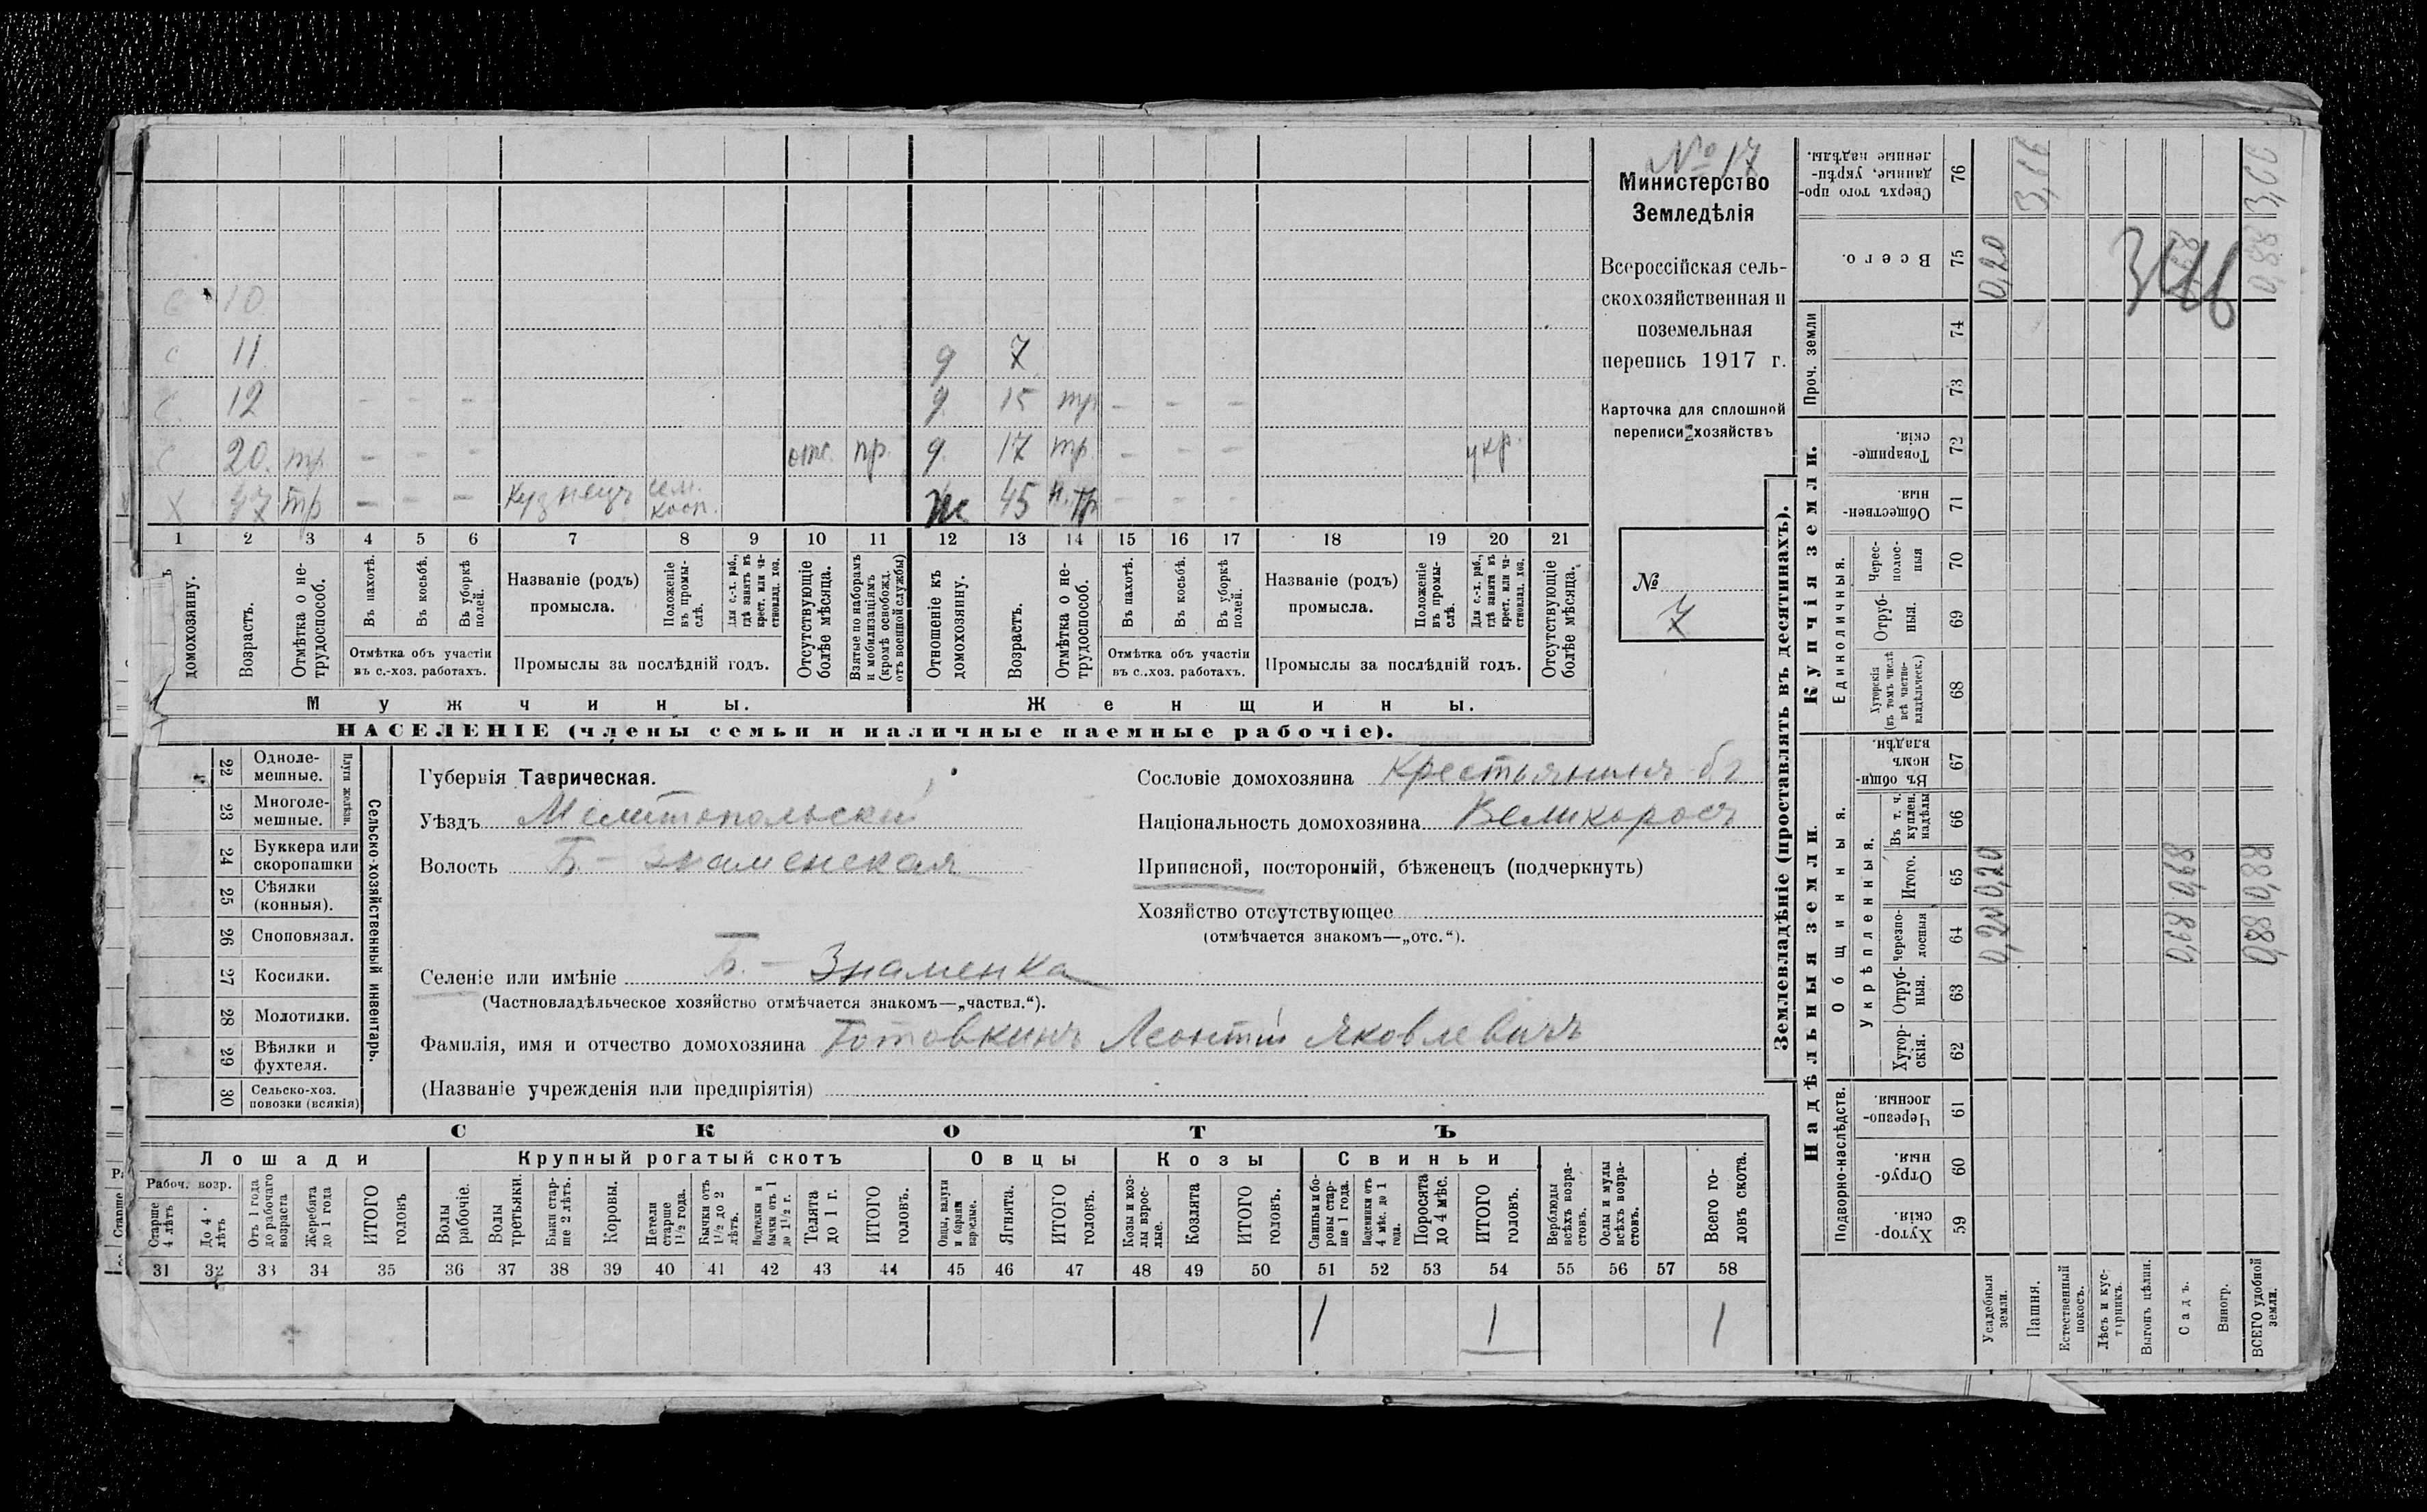 № 17
Министерство
Земледѣлія
Всероссійская сель-
скохозяйственная и
поземельная
перепись 1917 г.
Карточка для сплошной
переписи хозяйствъ
№
7
с 10
с 11 д 7
с 12 - - - д 15 тр - - -
с 20 тр - - - отс. пр. д 17 тр. - - - укр.
х 47 тр - - - Кузнецъ сем. кооп. ж 45 п. тр - - -
1 2 3 4 5 6 7 8 9 10 11 12 13 14 15 16 17 18 19 20 21
домохозяину.
Возрастъ.
Отмѣтка о не-
трудоспособ.
Въ пахотѣ.
Въ косьбѣ.
Въ уборкѣ
полей.
Отмѣтка объ участіи
въ с.-хоз. работахъ.
Названіе (родъ)
промысла.
Положеніе
въ промы-
слѣ.
Для с.-х. раб.,
гдѣ занятъ въ
крест. или ча-
стновлад. хоз.
Промыслы за послѣдній годъ.
Отсутствующіе
болѣе мѣсяца.
Взятые по наборамъ
и мобилизаціямъ
(кромѣ освобожд.
отъ военной службы)
Отношеніе къ
домохозяину.
Возрастъ.
Отмѣтка о не-
трудоспособ.
Въ пахотѣ.
Въ косьбѣ.
Въ уборкѣ
полей.
Отмѣтка объ участіи
въ с.-хоз. работахъ.
Названіе (родъ)
промысла.
Положеніе
въ промы-
слѣ.
Для с.-х. раб.,
гдѣ занята въ
крест. или ча-
стновлад. хоз.
Промыслы за послѣдній годъ.
Отсутствующіе
болѣе мѣсяца.
Мужчины.
Женщины.
НАСЕЛЕНІЕ (члены семьи и наличные наемные рабочіе).
22 Одноле-
мешные.
23 Многоле-
мешные.
Плуги желѣзн.
24 Буккера или
скоропашки
25 Сѣялки
(конныя).
26 Сноповязал.
27 Косилки.
28 Молотилки.
29 Вѣялки и
фухтеля.
30 Сельско-хоз.
повозки (всякія)
Сельско-хозяйственный инвентарь.
Губернія Таврическая.
Уѣздъ Мелитопольскій
Волость Б.-Знаменская
Селеніе или имѣніе Б.-Знаменка
(Частновладѣльческое хозяйство отмѣчается знакомъ—„частвл.“).
Фамилія, имя и отчество домохозяина Готовкинъ Леонтій Яковлевичъ
(Названіе учрежденія или предпріятія)
Сословіе домохозяина Крестьянинъ
Національность домохозяина Великоросъ
Приписной, посторонній, бѣженецъ (подчеркнуть)
Хозяйство отсутствующее
(отмѣчается знакомъ—„отс.“).
СКОТЪ
Лошади
Крупный рогатый скотъ
Овцы
Козы
Свиньи
Рабоч. возр.
Старше
4 лѣтъ
До 4
лѣтъ
Отъ 1 года
до рабочаго
возраста
Жеребята
до 1 года
ИТОГО
головъ
Волы
рабочіе.
Волы
третьяки.
Быки стар-
ше 2 лѣтъ.
Коровы.
Нетели
старше
1½ года.
Бычки отъ
1½ до 2
лѣтъ.
Подтелки и
бычки отъ 1
до 1½ г.
Телята
до 1 г.
ИТОГО
головъ.
Овцы, валухи
и бараны
взрослые.
Ягнята.
ИТОГО
головъ.
Козы и коз-
лы взрос-
лые.
Козлята
ИТОГО
головъ.
Свиньи и бо-
ровы стар-
ше 1 года.
Подсвинки отъ
4 мѣс. до 1
года.
Поросята
до 4 мѣс.
ИТОГО
головъ.
Верблюды
всѣхъ возра-
стовъ.
Ослы и мулы
всѣхъ возра-
стовъ.
Всего го-
ловъ скота.
31 32 33 34 35 36 37 38 39 40 41 42 43 44 45 46 47 48 49 50 51 52 53 54 55 56 57 58
1 1 1
Землевладѣніе (проставлять въ десятинахъ).
Надѣльныя земли.
Купчія земли.
Проч. земли
Подворно-наслѣдств.
Общинныя.
Укрѣпленныя.
Единоличныя.
Хутор-
скія. 59
Отруб-
ныя. 60
Черезпо-
лосныя. 61
Хутор-
скія. 62
Отруб-
ныя. 63
Черезпо-
лосныя 64
Итого. 65
Въ т. ч.
куплен.
надѣлы 66
Въ общи-
номъ
владѣн. 67
Хуторскія
(въ томъ числѣ
всѣ частно-
владѣльческ.) 68
Отруб-
ныя. 69
Черес-
полос-
ныя 70
Обществен-
ныя. 71
Товарище-
скія. 72
73
74
Всего. 75
Сверхъ того про-
данные, укрѣп-
ленные надѣлы. 76
Усадебныя
земли. 0,20 0,20 0,20
Пашня. 3,16
Естественный
покосъ.
Лѣсъ и кус-
тарникъ.
Выгонъ цѣлин.
Садъ. 0,68 0,68
Виногр.
ВСЕГО удобной
земли. 0,88 0,88 0,88